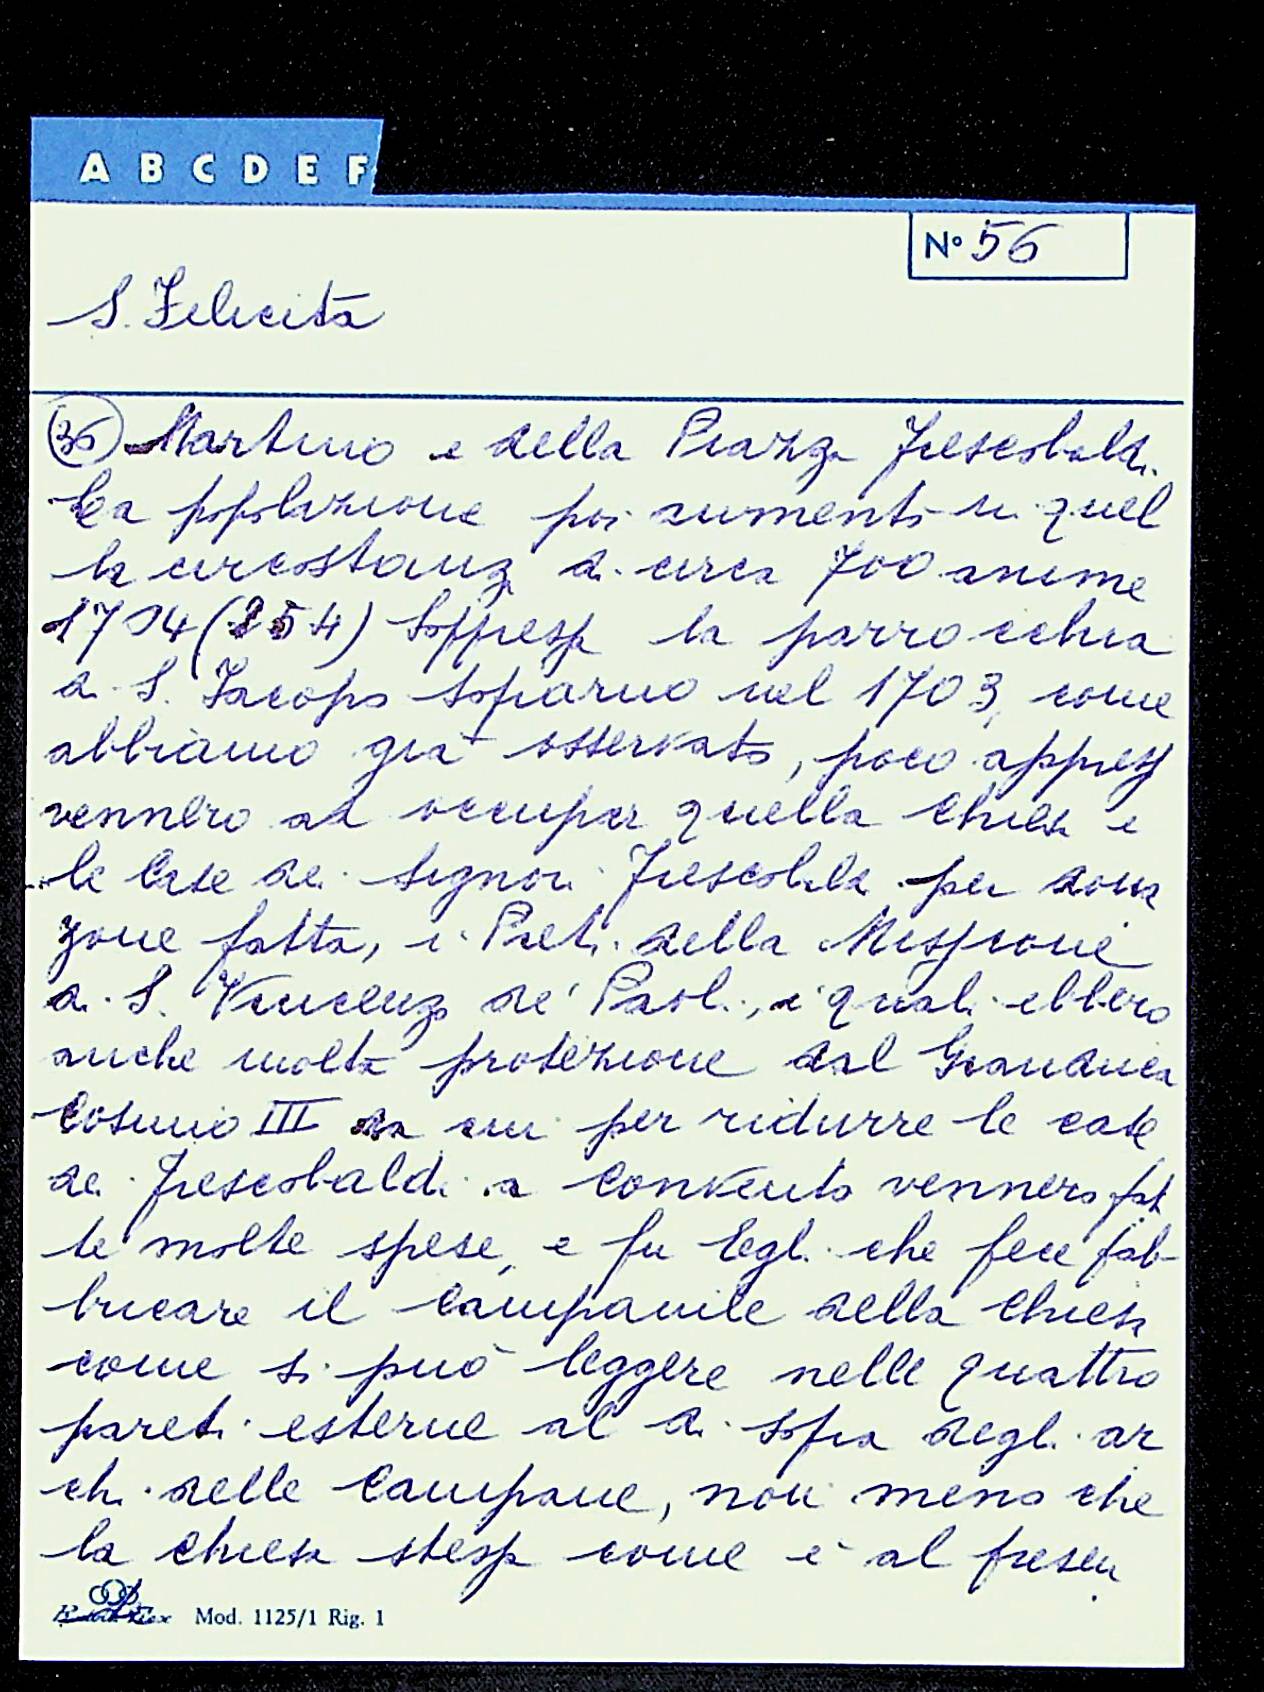 A B C D E F
N° 56
S. Felicità
36 Martino e della Piazza Frescobaldi.
La popolazione poi aumentò in quel
la circostanza di circa 700 anime
1704 (254) Soppressa la parrocchia
di S. Jacopo Soprarno nel 1703, come
abbiamo già osservato, poco appresso
vennero ad occupar quella Chiesa e
le Case dei Signori Frescobaldi per dona
zione fatta, i Preti della Missione
di S. Vincenzo de' Paoli, i quali ebbero
anche molta protezione dal Granduca
Cosimo III da cui per ridurre le case
dei Frescobaldi a Convento vennero fat
te molte spese, e fu Egli che fece fab-
bricare il Campanile della Chiesa
come si può leggere nelle quattro
pareti esterne al di sopra degli ar
chi delle Campane, non meno che
la Chiesa stessa come è al presen
Mod. 1125/1 Rig. 1